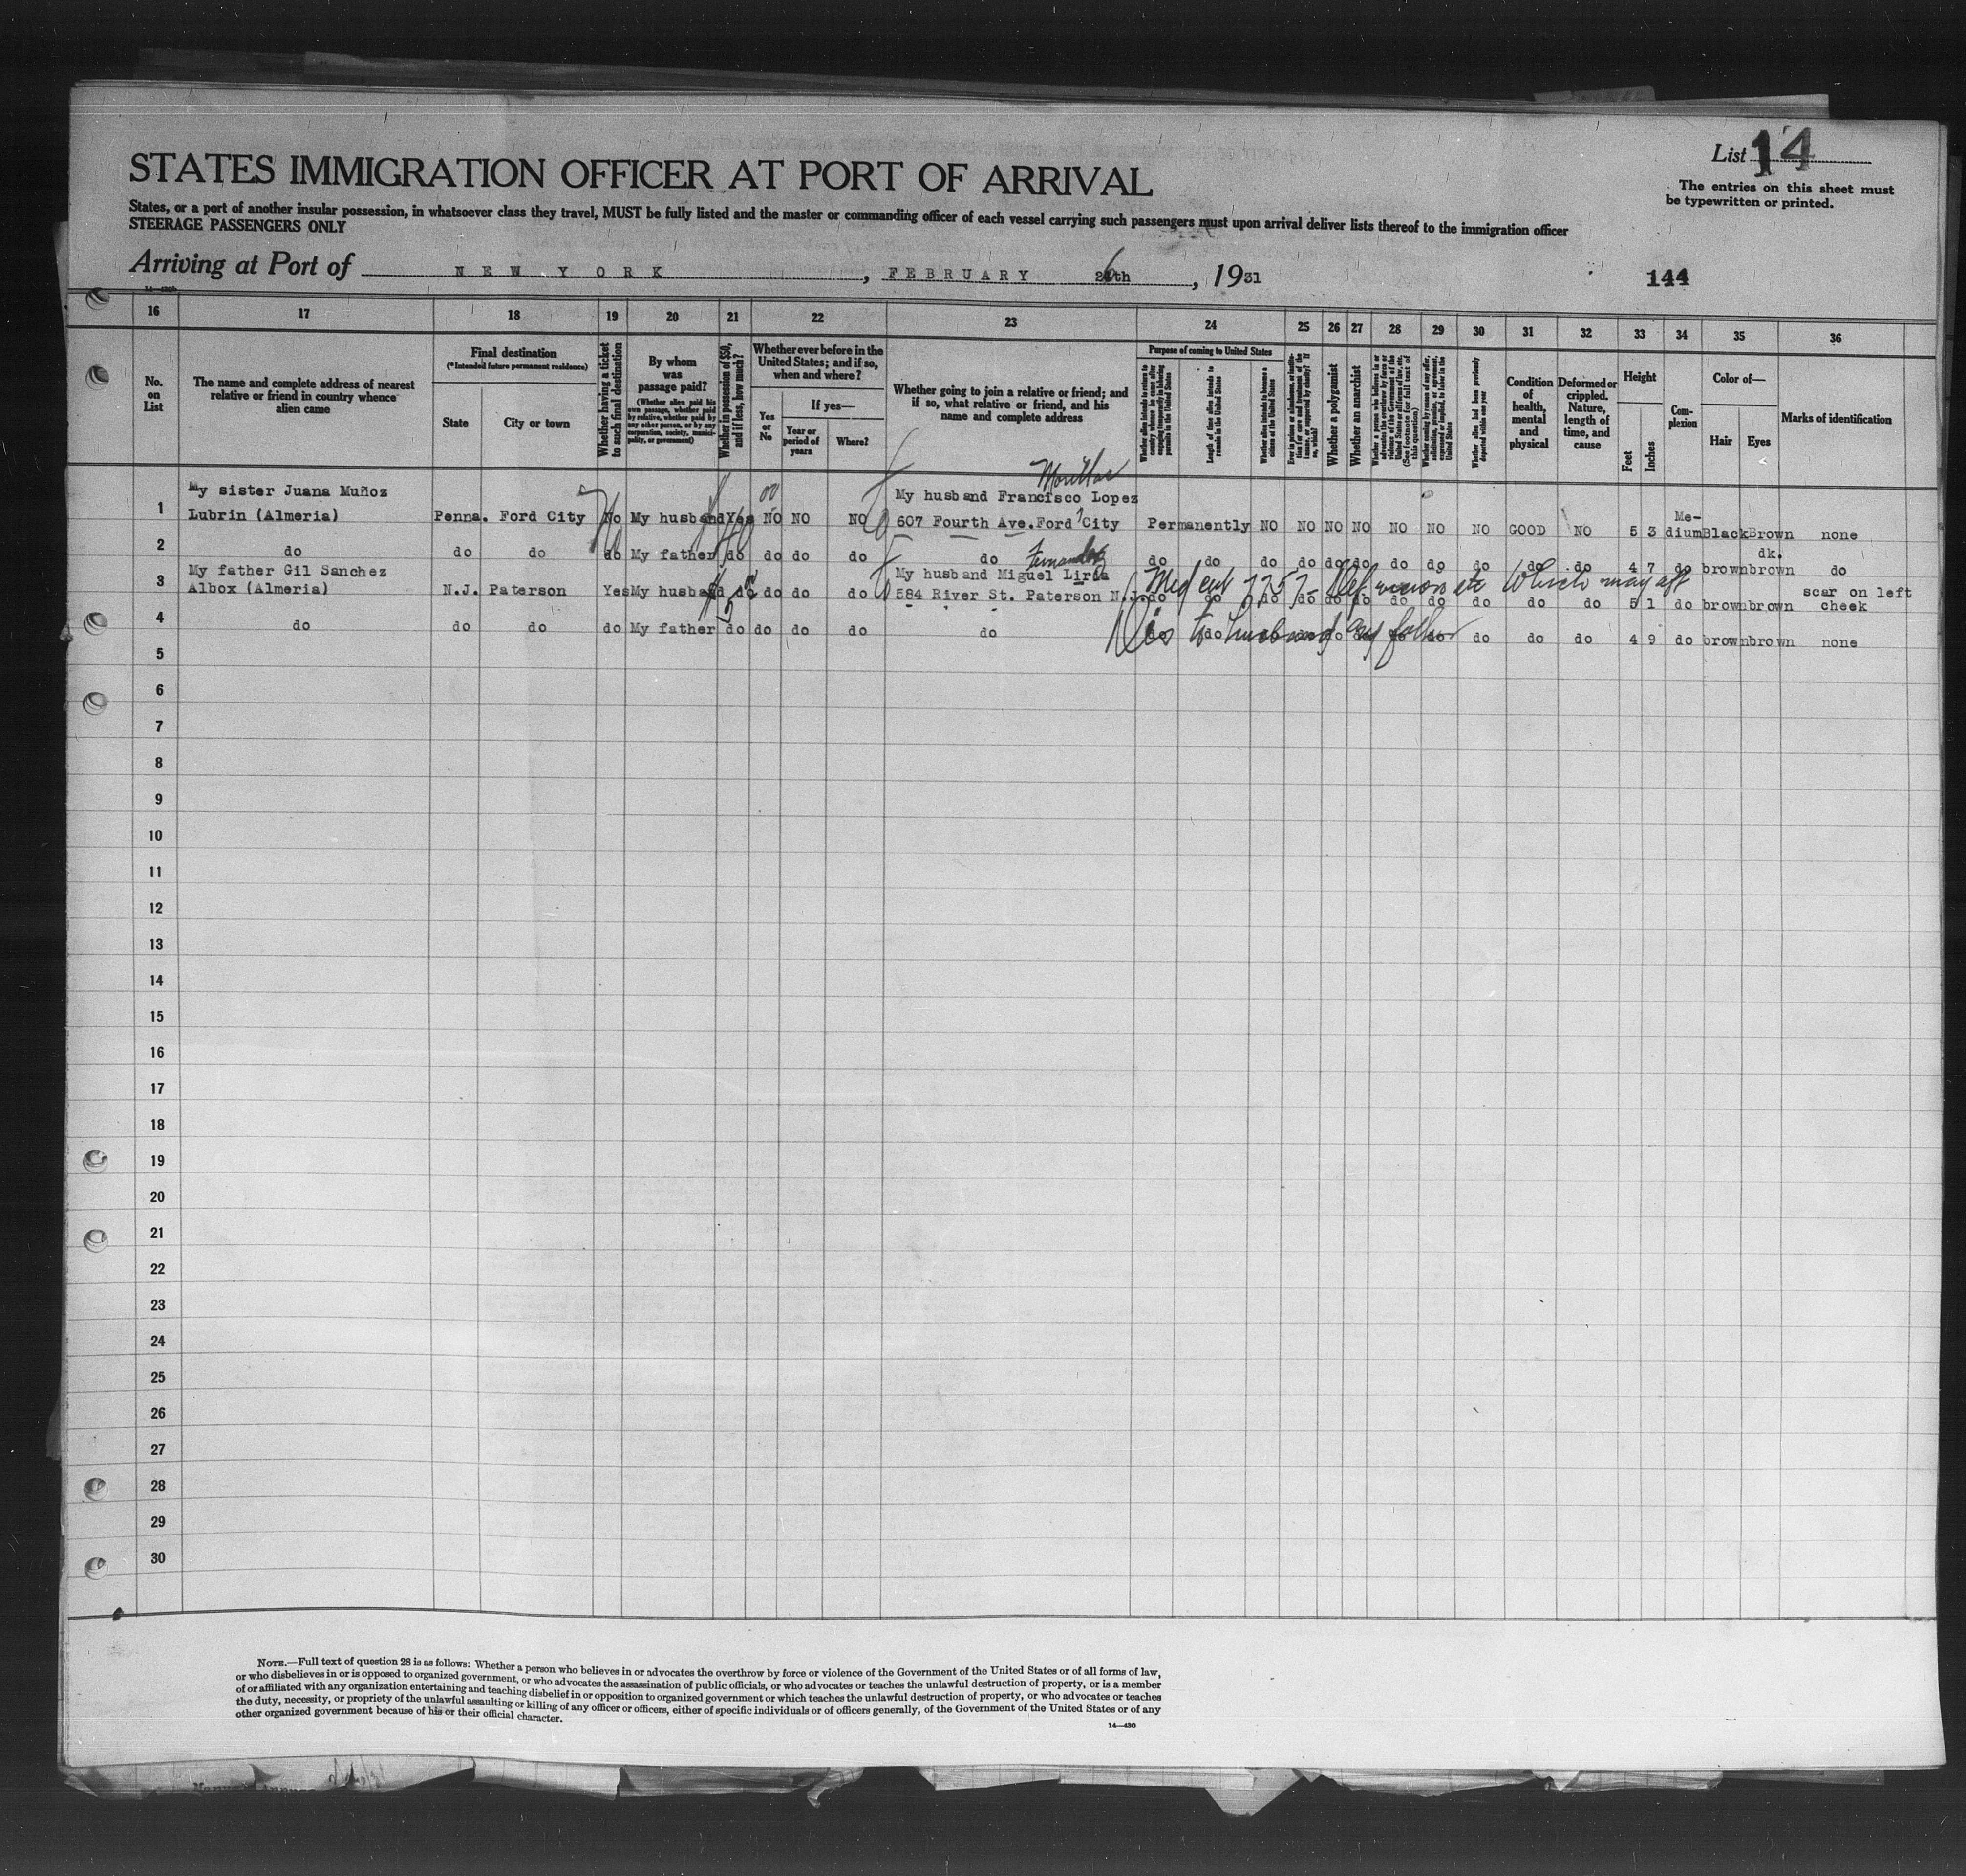 List 14
The entries on this sheet must
be typewritten or printed.
STATES IMMIGRATION OFFICER AT PORT OF ARRIVAL
States, or a port of another insular possession, in whatsoever class they travel, MUST be fully listed and the master or commanding officer of each vessel carrying such passengers must upon arrival deliver lists thereof to the immigration officer
STEERAGE PASSENGERS ONLY
Arriving at Port of NEW YORK, FEBRUARY 26th, 1931
144
16 17 18 19 20 21 22 23 24 25 26 27 28 29 30 31 32 33 34 35 36
No. on List
The name and complete address of nearest relative or friend in country whence alien came
Final destination
(*Intended future permanent residence)
State
City or town
Whether having a ticket to such final destination
By whom was passage paid?
(Whether alien paid his own passage, whether paid by relative, whether paid by any other person, or by any corporation, society, municipality, or government)
Whether in possession of $50, and if less, how much?
Whether ever before in the United States; and if so, when and where?
Yes or No
If yes—
Year or period of years
Where?
Whether going to join a relative or friend; and if so, what relative or friend, and his name and complete address
Purpose of coming to United States
Length of time alien intends to remain in the United States
Whether alien intends to become a citizen of the United States
Whether a polygamist
Whether an anarchist
Whether alien had been previously deported within one year
Condition of health, mental and physical
Deformed or crippled. Nature, length of time, and cause
Height
Feet
Inches
Complexion
Color of—
Hair
Eyes
Marks of identification
Morillas
1 My sister Juana Muñoz My husband Francisco Lopez
Lubrin (Almeria) Penna. Ford City No My husband Yes NO NO NO 607 Fourth Ave. Ford City Permanently NO NO NO NO NO NO NO GOOD NO 5 3 Medium Black Brown none
2 do do do do My father do do do do do Fernandez do do do do do do do do do do do 4 7 do brown dk. brown do
3 My father Gil Sanchez My husband Miguel Liria Med cert
Albox (Almeria) N.J. Paterson Yes My husband do do do do 584 River St. Paterson N.J. do do do do do do do do do do do 5 1 do brown brown scar on left cheek
which may aff
4 do do do do My father do do do do do do do do do do do do do do do 4 9 do brown brown none
to husband and father
5
6
7
8
9
10
11
12
13
14
15
16
17
18
19
20
21
22
23
24
25
26
27
28
29
30
NOTE.—Full text of question 28 is as follows: Whether a person who believes in or advocates the overthrow by force or violence of the Government of the United States or of all forms of law,
or who disbelieves in or is opposed to organized government, or who advocates the assassination of public officials, or who advocates or teaches the unlawful destruction of property, or is a member
of or affiliated with any organization entertaining and teaching disbelief in or opposition to organized government or which teaches the unlawful destruction of property, or who advocates or teaches
the duty, necessity, or propriety of the unlawful assaulting or killing of any officer or officers, either of specific individuals or of officers generally, of the Government of the United States or of any
other organized government because of his or their official character.
14—430